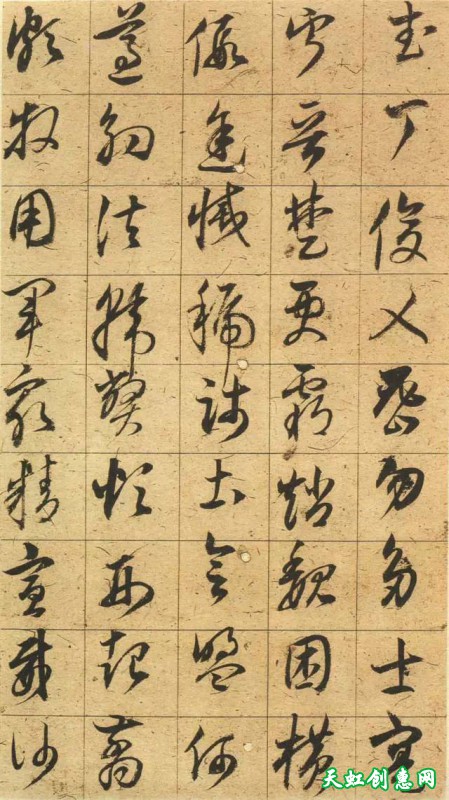 武丁俊乂密勿多士寔
寧晉楚更霸趙魏困橫
假途滅虢踐土會盟何
遵約法韓弊煩刑起翦
頗牧用軍最精宣威沙
天虹创惠网